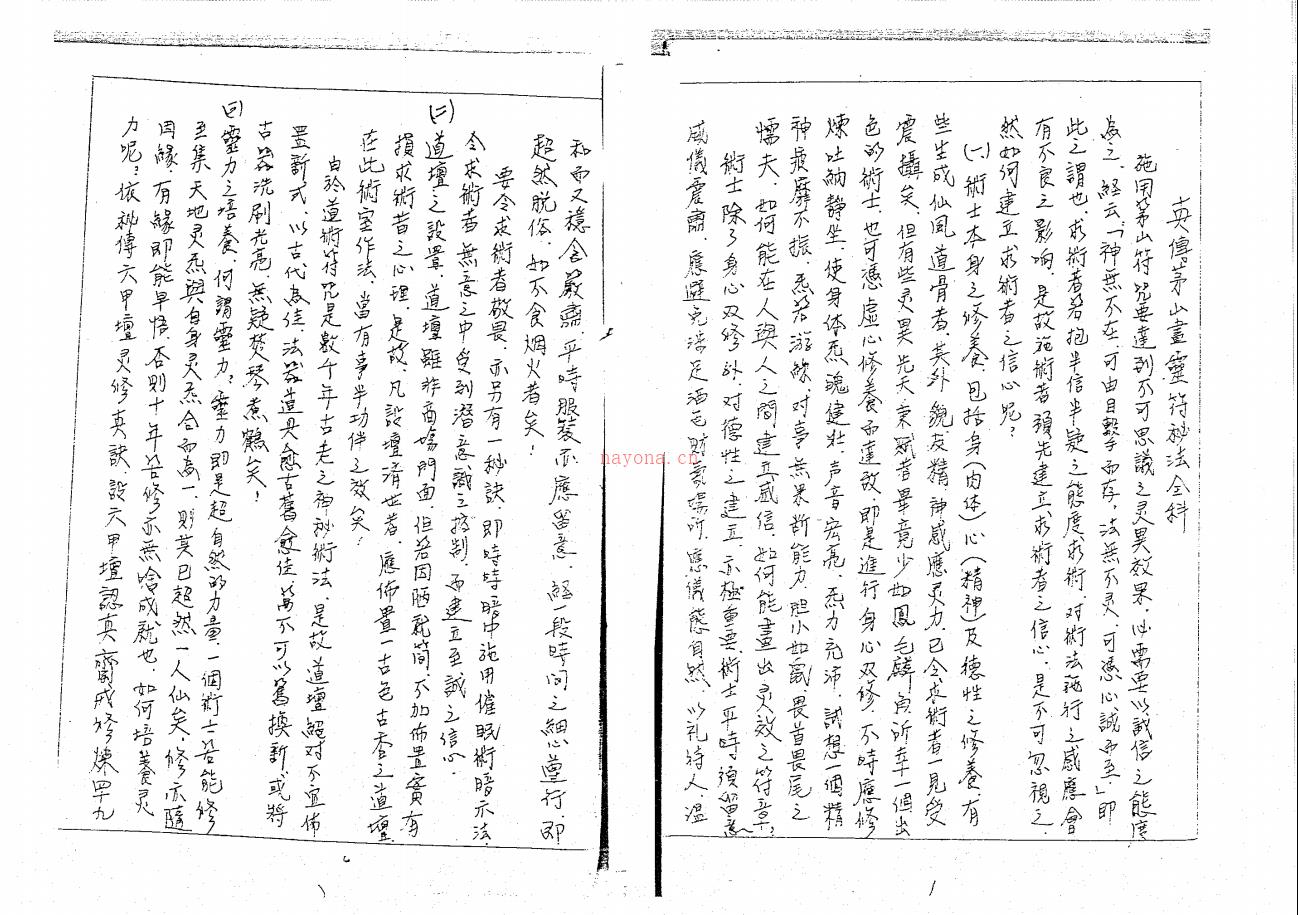 真傳茅山畫靈符秘法全科
施用茅山符咒要達到不可思議之灵異效果必需要以誠信之態度
為之，經云：「神無不在可由目擊而存，法無不灵，可憑心誠而至」即
此之謂也，求術者若抱半信半疑之態度求術，对術法施行之感應會
有不良之影响，是故施術者須先建立求術者之信心，是不可忽視之，
然如何建立求術者之信心呢？
(一)術士本身之修養，包括身(肉体)心(精神)及德性之修養，有
些生成仙風道骨者，其外貌及精神感應灵力，已令求術者一見受
震攝矣，但有些灵異先天禀賦者畢竟少如鳳毛麟角所幸一個出
色的術士，也可憑虛心修養而達致，即是進行身心双修，不時應修
煉吐納靜坐，使身体炁魂健壯，声音宏亮，炁力充沛，試想一個精
神疲靡不振，炁若游絲，对事無果断能力，胆小如鼠，畏首畏尾之
懦夫，如何能在人與人之間建立威信，如何能畫出灵效之符章？
術士除了身心双修外，对德性之建立，亦極重要，術士平時須留意
威儀震肅，應避免涉足酒色財氣場所，應儀態自然，以礼待人，溫
和而又穩含嚴肅，平時服裝亦應留意，經一段時间之細心遵行，即
超然脫俗，如不食烟火者矣！
要令求術者敬畏，亦另有一秘訣，即時時暗中施用催眠術暗示法，
令求術者無意之中受到潛意識之控制，而建立至誠之信心．
(二)道壇之設置，道壇雖非商場門面，但若因陋就簡，不加佈置實有
損求術者之心理，是故，凡設壇濟世者，應佈置一古色古香之道壇，
在此術室作法，當有事半功倍之效矣！
由於道術符咒是數千年古老之神秘術法，是故道壇絕对不宜佈
置新式，以古代為佳，法器道具愈古舊愈佳，萬不可以舊換新或將
古器洗刷光亮，無疑焚琴煮鶴矣！
(三)靈力之培養，何謂靈力？靈力即是超自然的力量，一個術士若能修
至集天地灵炁與自身灵炁合而為一，則其已超然一人仙矣，修亦隨
因緣，有緣即能早悟，否則十年苦修亦無啥成就也，如何培養灵
力呢？依祕傳六甲壇灵修真訣，設六甲壇認真齋戒修煉四十九
nayona.cn
1